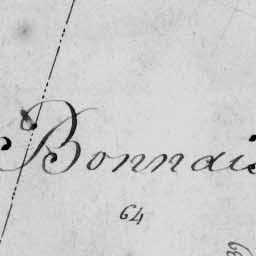 Bonnais
64